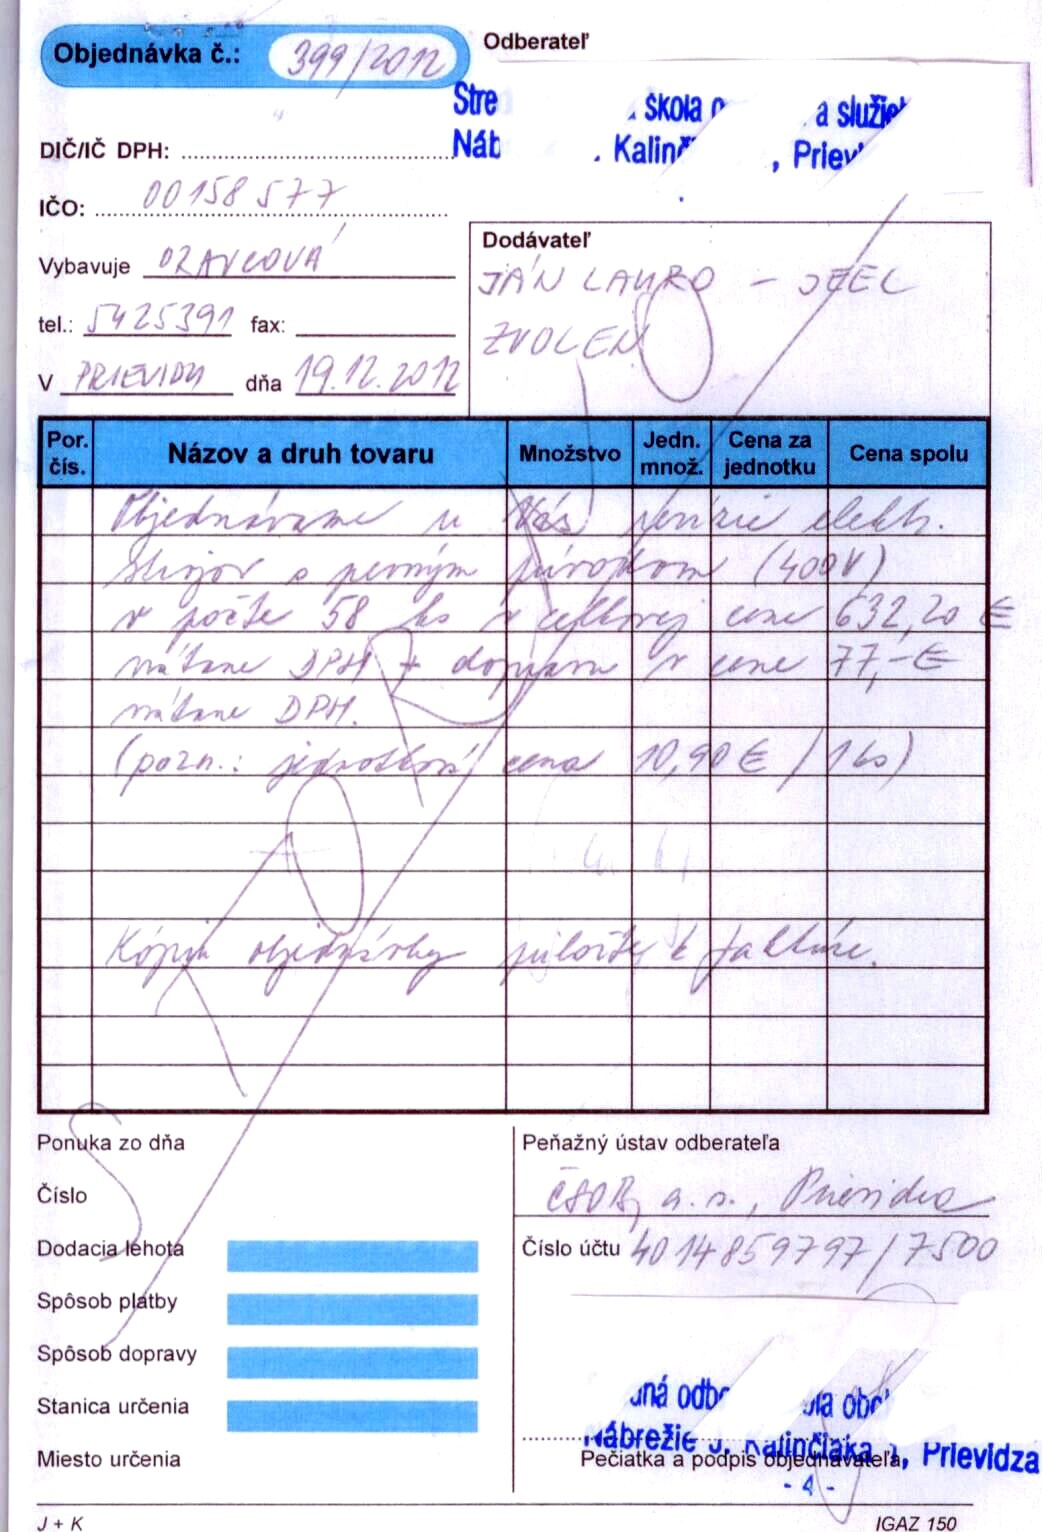 Objednávka č.: 399/2012
Odberateľ
Stre škola a služie
Náb . Kalinč , Priev
DIČ/IČ DPH:
IČO: 00158577
Vybavuje ORAVCOVÁ
tel.: 5425391 fax:
V PRIEVIDZI dňa 19.12.2012
Dodávateľ
JÁN LAURO - JEEL
ZVOLEN
STORNO
Por. čís. Názov a druh tovaru Množstvo Jedn. množ. Cena za jednotku Cena spolu
Objednávame u Vás revízie elektr.
strojov s pevným prívodom (400V)
v počte 58 ks v celkovej cene 632,20 €
vrátane DPH + dopravu v cene 77,-€
vrátane DPH.
(pozn.: jednotková cena 10,90 € / 1 ks)
Kópiu objednávky priložte k faktúre.
Ponuka zo dňa
Číslo
Dodacia lehota
Spôsob platby
Spôsob dopravy
Stanica určenia
Miesto určenia
Peňažný ústav odberateľa
ČSOB, a.s., Prievidza
Číslo účtu 4014859797/7500
ná odb ola obc
Nábrežie J. Kalinčiaka , Prievidza
Pečiatka a podpis objednávateľa
- 4 -
J + K
IGAZ 150